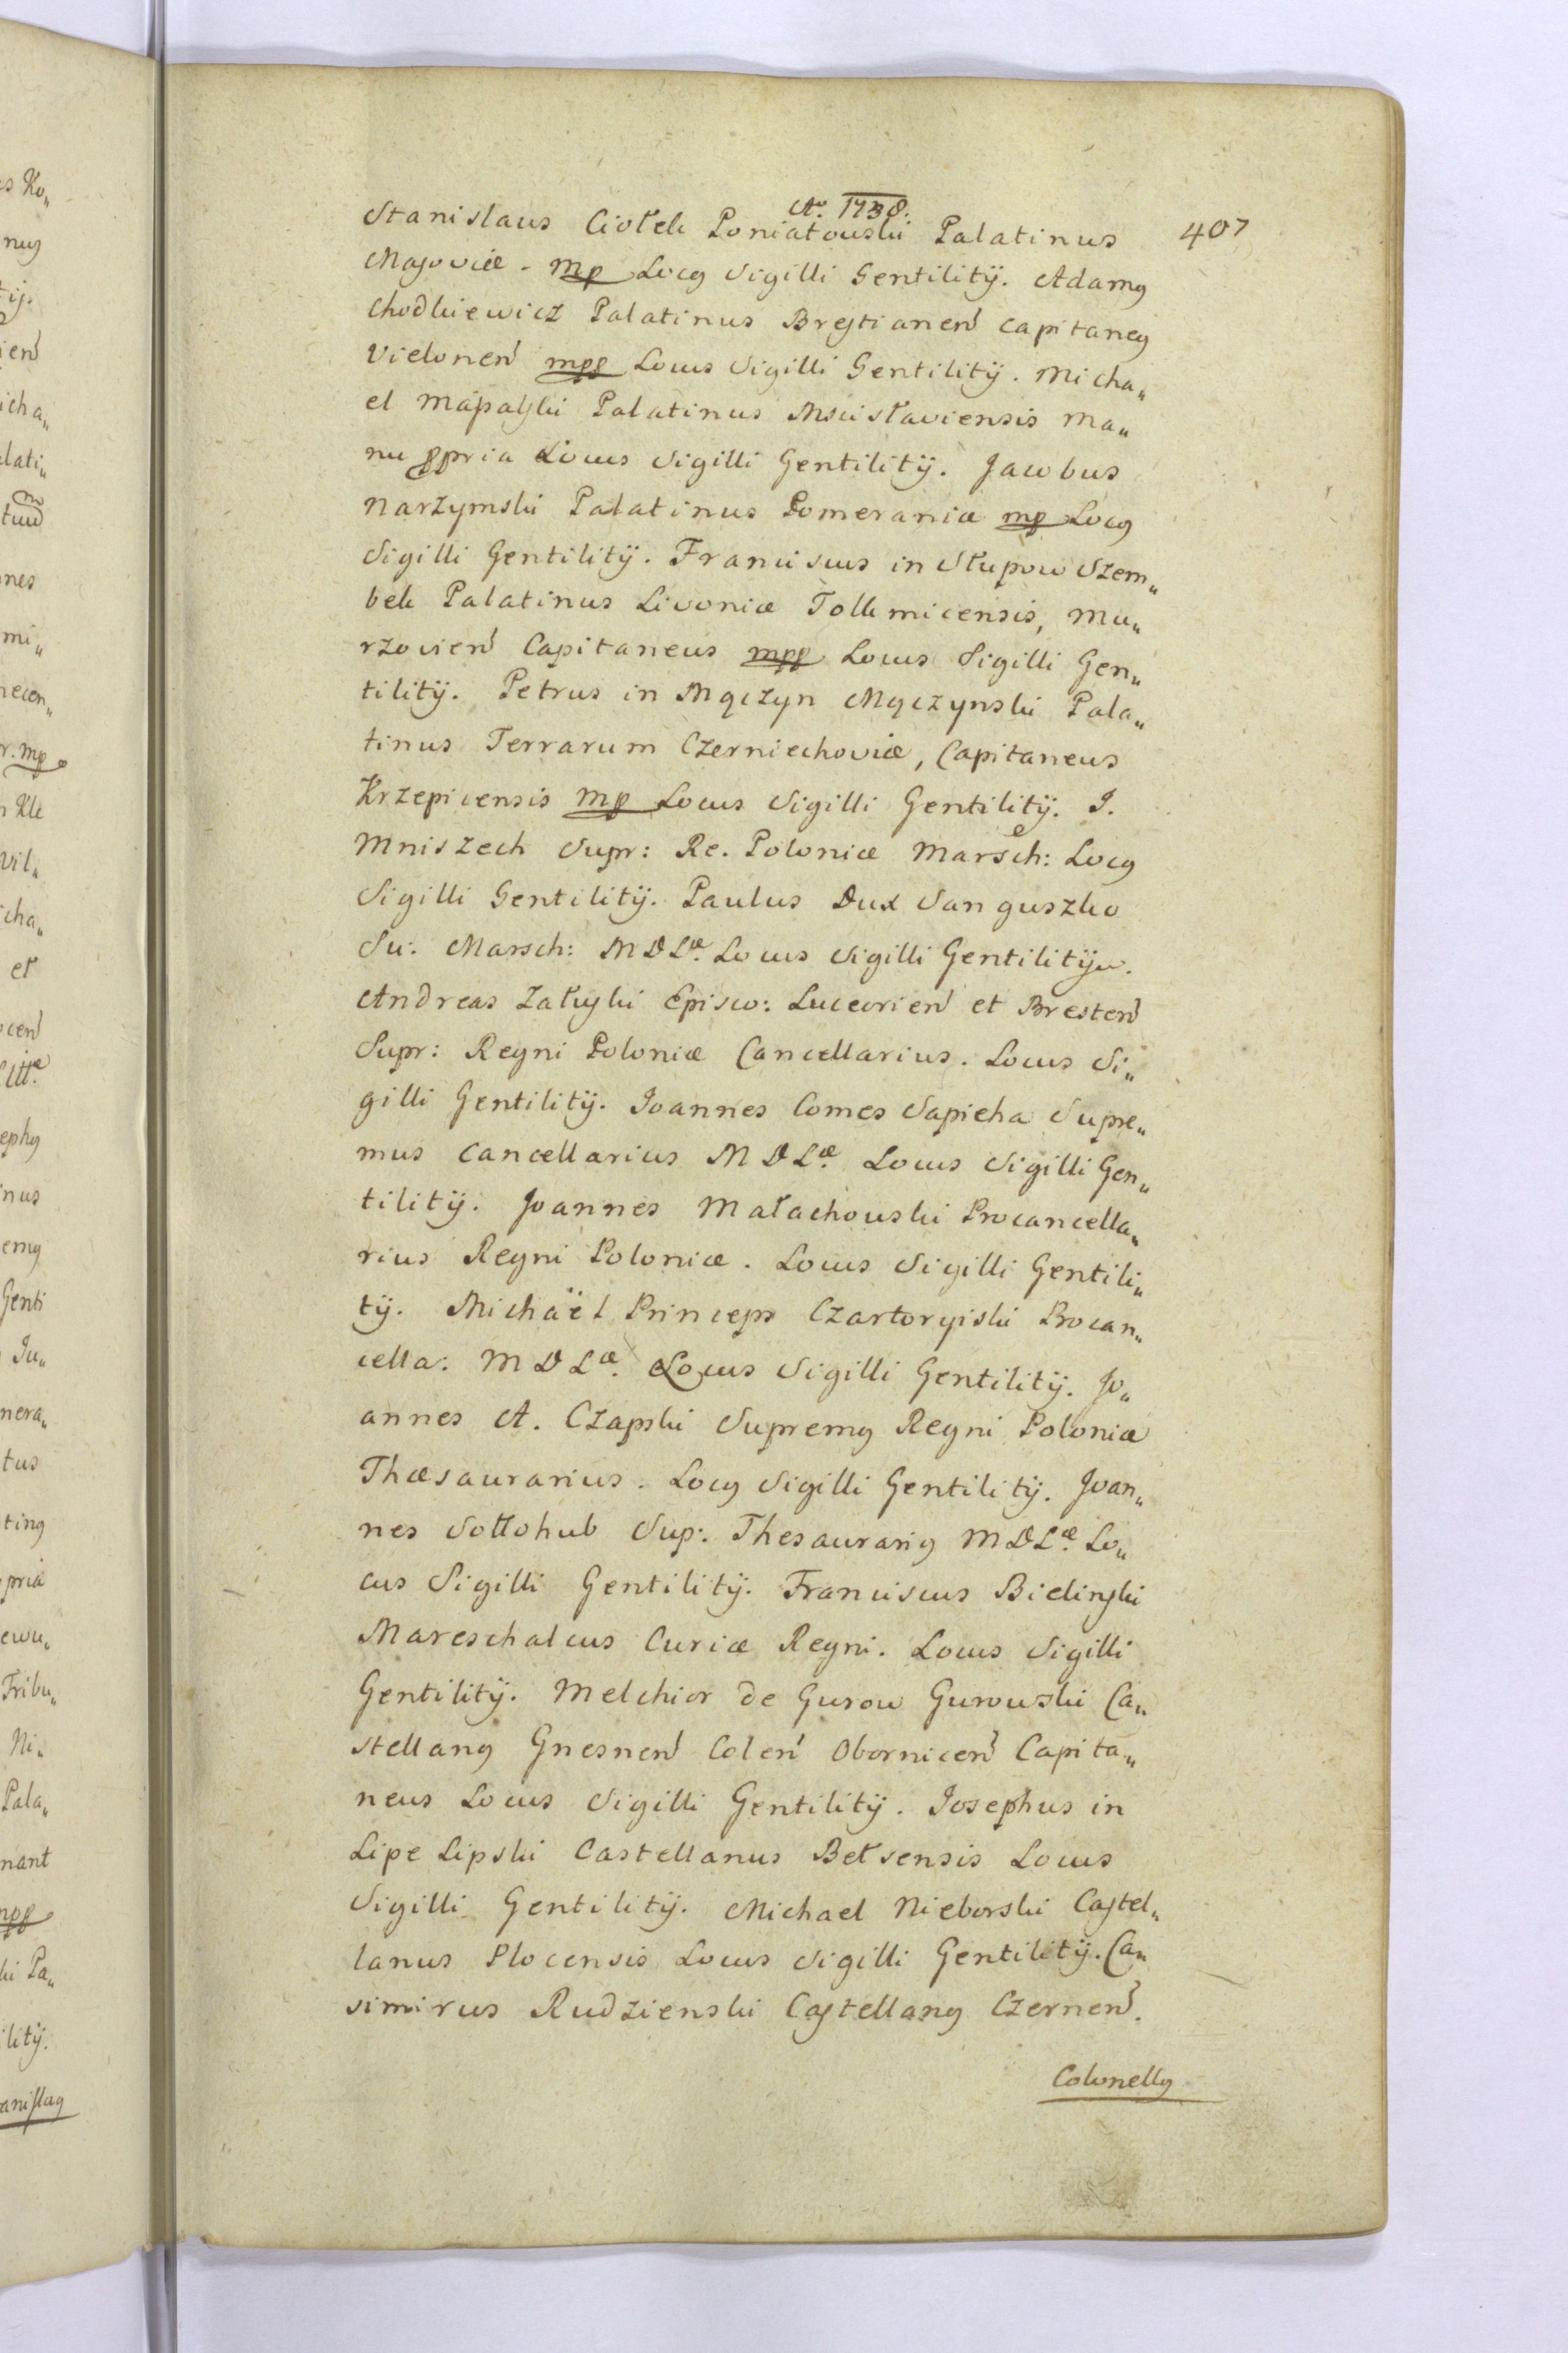 Aō. 1738.
407
Stanislaus Ciołek Poniatouski Palatinus
Masoviæ - mp Locꝰ Sigilli Gentilitÿ. Adamꝰ
Chodkiewicz Palatinus Brestianen̄ Capitaneꝰ
Vielonen̄ mpp Locus Sigilli Gentilitÿ. Micha„
el Mapalski Palatinus Mscisłaviensis Ma„
nu ppria Locus Sigilli Gentilitÿ. Jacobus
Narzymski Palatinus Pomeraniæ mp Locꝰ
Sigilli Gentilitÿ. Franciscus in Słupow Szem„
bek Palatinus Livoniæ Tolkmicensis, Mu„
rzovien̄ Capitaneus mpp Locus Sigilli Gen„
tilitÿ. Petrus in Mączyn Mączynski Pala„
tinus Terrarum Czerniechoviæ, Capitaneus
Krzepicensis mp Locus Sigilli Gentilitÿ. J.
Mniszech Supr: Re. Poloniæ Marsech: Locꝰ
Sigilli Gentilitÿ. Paulus Dux Sanguszko
Su: Marsch: MDLæ. Locus Sigilli Gentilitÿ.
Andreas Załuski Episco: Luceorien̄ et Bresten̄
Supr: Regni Poloniæ Cancellarius. Locus Si„
gilli Gentilitÿ. Joannes Comes Sapieha Supre„
mus Cancellarius MDLæ. Locus Sigilli Gen„
tilitÿ. Joannes Małachouski Procancella„
rius Regni Poloniæ. Locus Sigilli Gentili„
tÿ. Michaël Princeps Czartoryiski Procan„
cella: MDLæ. Locus Sigilli Gentilitÿ. Jo„
annes A. Czapski Supremꝰ Regni Poloniæ
Thæsaurarius. Locꝰ Sigilli Gentilitÿ. Joan„
nes Sołłohub Sup: Thesaurariꝰ MDLæ. Lo„
cus Sigilli Gentilitÿ. Franciscus Bielinski
Mareschalcus Curiæ Regni. Locus Sigilli
Gentilitÿ. Melchior de Gurow Gurowski Ca„
stellanꝰ Gnesnen̄ Colen̄ Obornicen̄ Capita„
neus Locus Sigilli Gentilitÿ. Josephus in
Lipe Lipski Castellanus Bełsensis Locus
Sigilli Gentilitÿ. Michael Nieborski Castel„
lanus Plocensis Locus Sigilli Gentilitÿ. Ca„
simirus Rudzienski Castellanꝰ Czernen̄.
Colonellꝰ